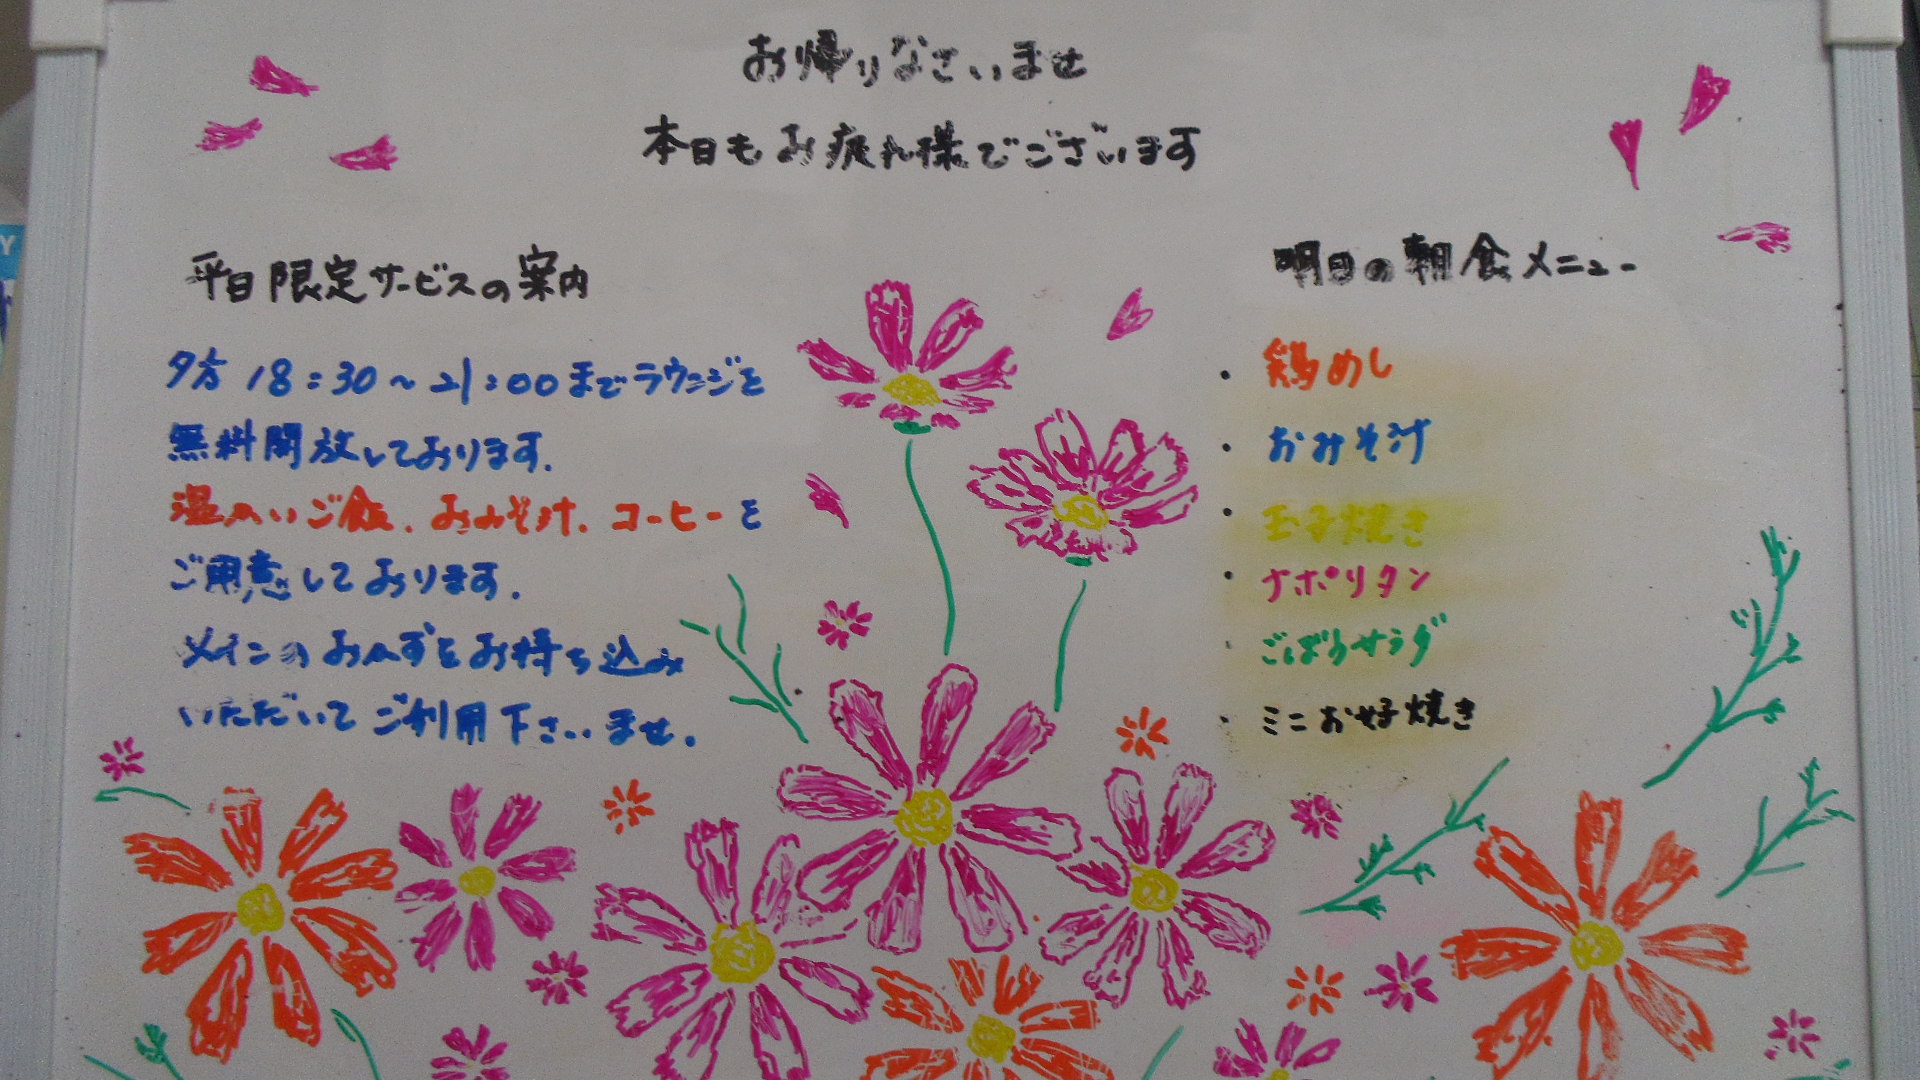 お帰りなさいませ
本日もお疲れ様でございます
平日限定サービスの案内
夕方 18:30~21:00までラウンジを
無料開放しております.
温かいご飯.おみそ汁.コーヒーを
ご用意しております.
メインのおかずをお持ち込み
いただいてご利用下さいませ.
明日の朝食メニュー
・鶏めし
・おみそ汁
・玉子焼き
・ナポリタン
・ごぼうサラダ
・ミニお好焼き
Y